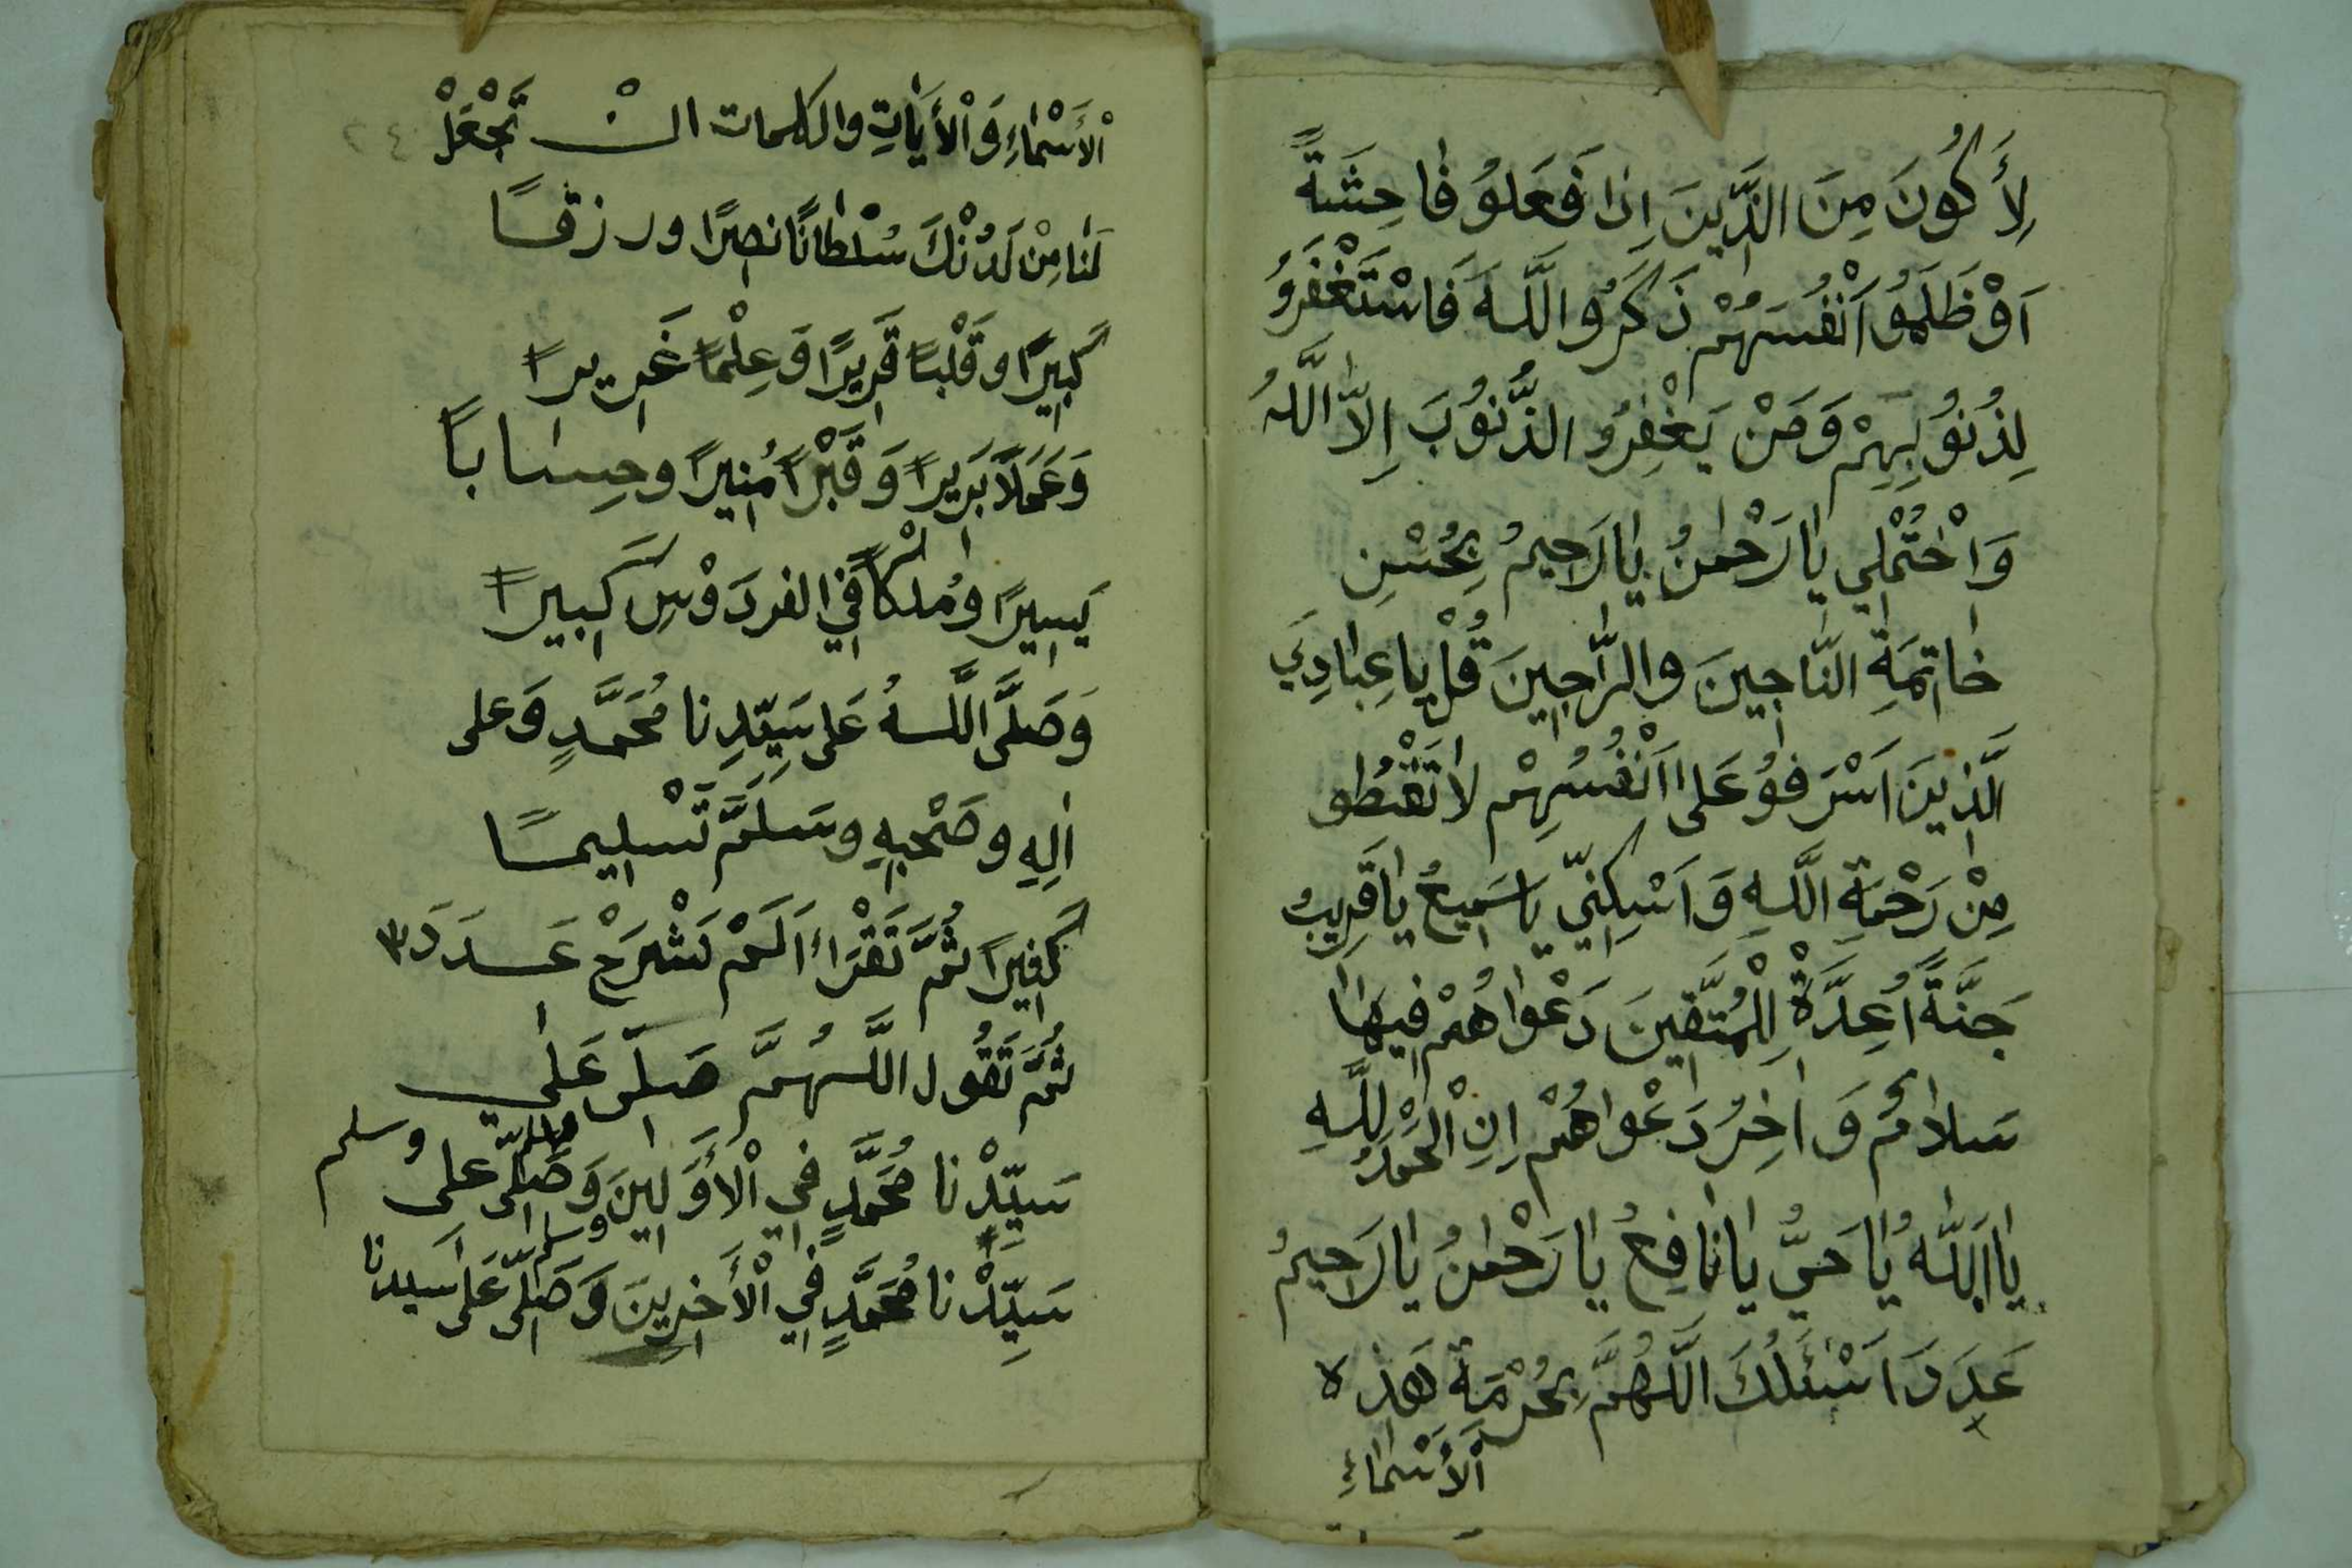 لِأَكُونَ مِنَ الَّذِينَ اِذَا فَعَلُوُ فَاحِشَةً
اَوْ ظَلَمُوُ اَنْفُسَهُمْ ذَكَرُوُ اللَّهَ فَاسْتَغْفَرُوُ
لِذُنُوُبِهِمْ وَمَنْ يَغْفِرُ الذُّنُوُبَ اِلاَّ اللَّهُ
وَاخْتُمْلِي يَا رَحْمٰنُ يَا رَحِيمُ بِحُسْنِ
خَاتِمَةِ النَّاجِينَ والرَّاجِينَ قُلْ يا عِبَادِيَ
الَّذِينَ اَسْرَفوُ عَلى اَنْفُسِهِمْ لاَ تَقْنَطُو
مِنْ رَحْمَةِ اللَّهِ وَاَسْكِنِّي يَا سَمِيعُ يَا قَرِيبُ
جَنَّةً اُعِدَّةْ لِلْمُتَّقِينَ دَعْوَاهُمْ فِيهَا
سَلاَمٌ وَاٰخِرُ دَعْوَاهُمْ اِنِ الْحَمْدُ لِلَّهِ
يَا اَللَّهُ يَا حَيُّ يَا نَافِعُ يَا رَحْمٰنُ يَا رَحِيمُ
عَدَدَ اَسْئَلُكَ اللَّهُمَّ بِحُرْمَةِ هَذِه
اْلأَسْمَاءِ
اْلأَسْمَاءِ وَاْلأَيَاتِ والكلمات انْ تَجْعَلْ
لَنَا مِنْ لَدُنْكَ سُلْطَانًا نصِرًا ورزقًا
كَبِيرًا وقَلْبًا قَرِيرًا وَعِلْمًا غَرِيرًا
وَعَمَلاً بَرِيرًا وَقَبْرًا مُنِيرًا وحِسَابًا
يَسِيرًا ومُلْكًا فِي الفردَوْسِ كَبِيرًا
وَصَلَّى اللَّهُ عَلى سَيِّدِنا مُحَمَّدٍ وَعلى
اٰلِهِ وصَحْبِهِ وسَلَّمَ تَسْلِيمًا
كَثِيرًا ثُمَّ تَقْرَاءُ اَلَمْ نَشْرَحْ عَدَدَ ٣
ثُمَّ تَقُول اللَّهُمَّ صَلِّ عَلٰي
سَيِّدْنا مُحَمَّدٍ فِي اْلأَوَّلِينَ وَصَلِّ وسلم على
سَيِّدْنا مُحَمَّدٍ فِي اْلأَخِرِينَ وَصَلِّ وسلم عَلى سَيدنا